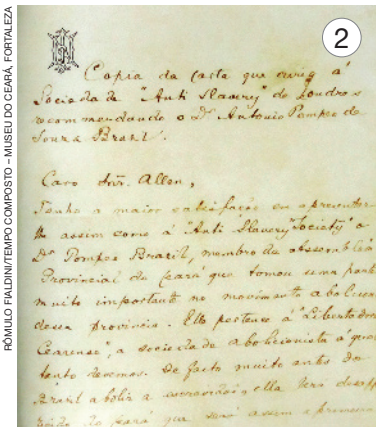 2
RÔMULO FIALDINI/TEMPO COMPOSTO – MUSEU DO CEARÁ, FORTALEZA
Copia da carta que à
Sociedade "Anti Slavery" de Londres
recommendando o Dr. Antonio Pompeo de
Souza Brazil.
Caro Snr. Allen,
Tenho a maior satisfação em apresentar-
lhe assim como à "Anti Slavery Society" o
Dr. Pompeo Brazil, membro da assembléa
Provincial do Ceará que tomou uma parte
muito importante no movimento abolicion
dessa provincia. Elle pertence á "Libertadora
Cearense", a sociedade abolicionista á quem
tanto devemos. De facto muito antes do
Brazil abolir a escravidão, ella terá
do Ceará que será assim a primeira